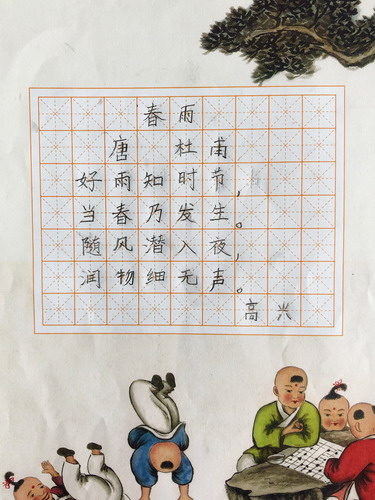 春雨
唐 杜甫
好雨知时节，
当春乃发生。
随风潜入夜，
润物细无声。
高兴